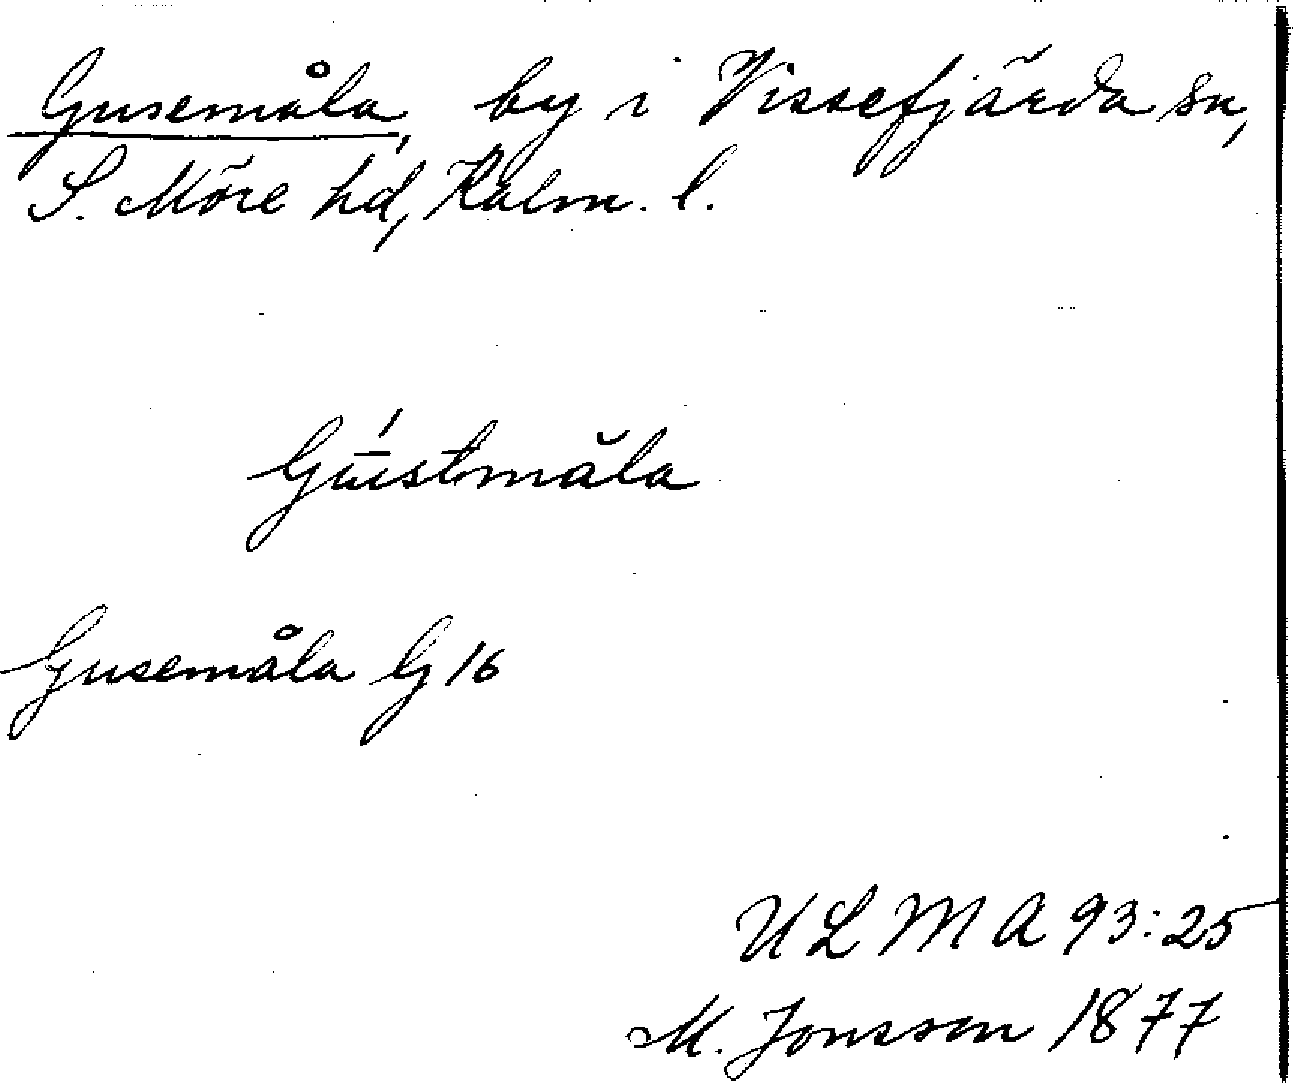 Gusemåla, by i Vissefjärda sn,
S. Möre hd, Kalm. l.
Gū́stmăla
Gusemåla G 16
ULMA 93:25
M. Jonsson 1877